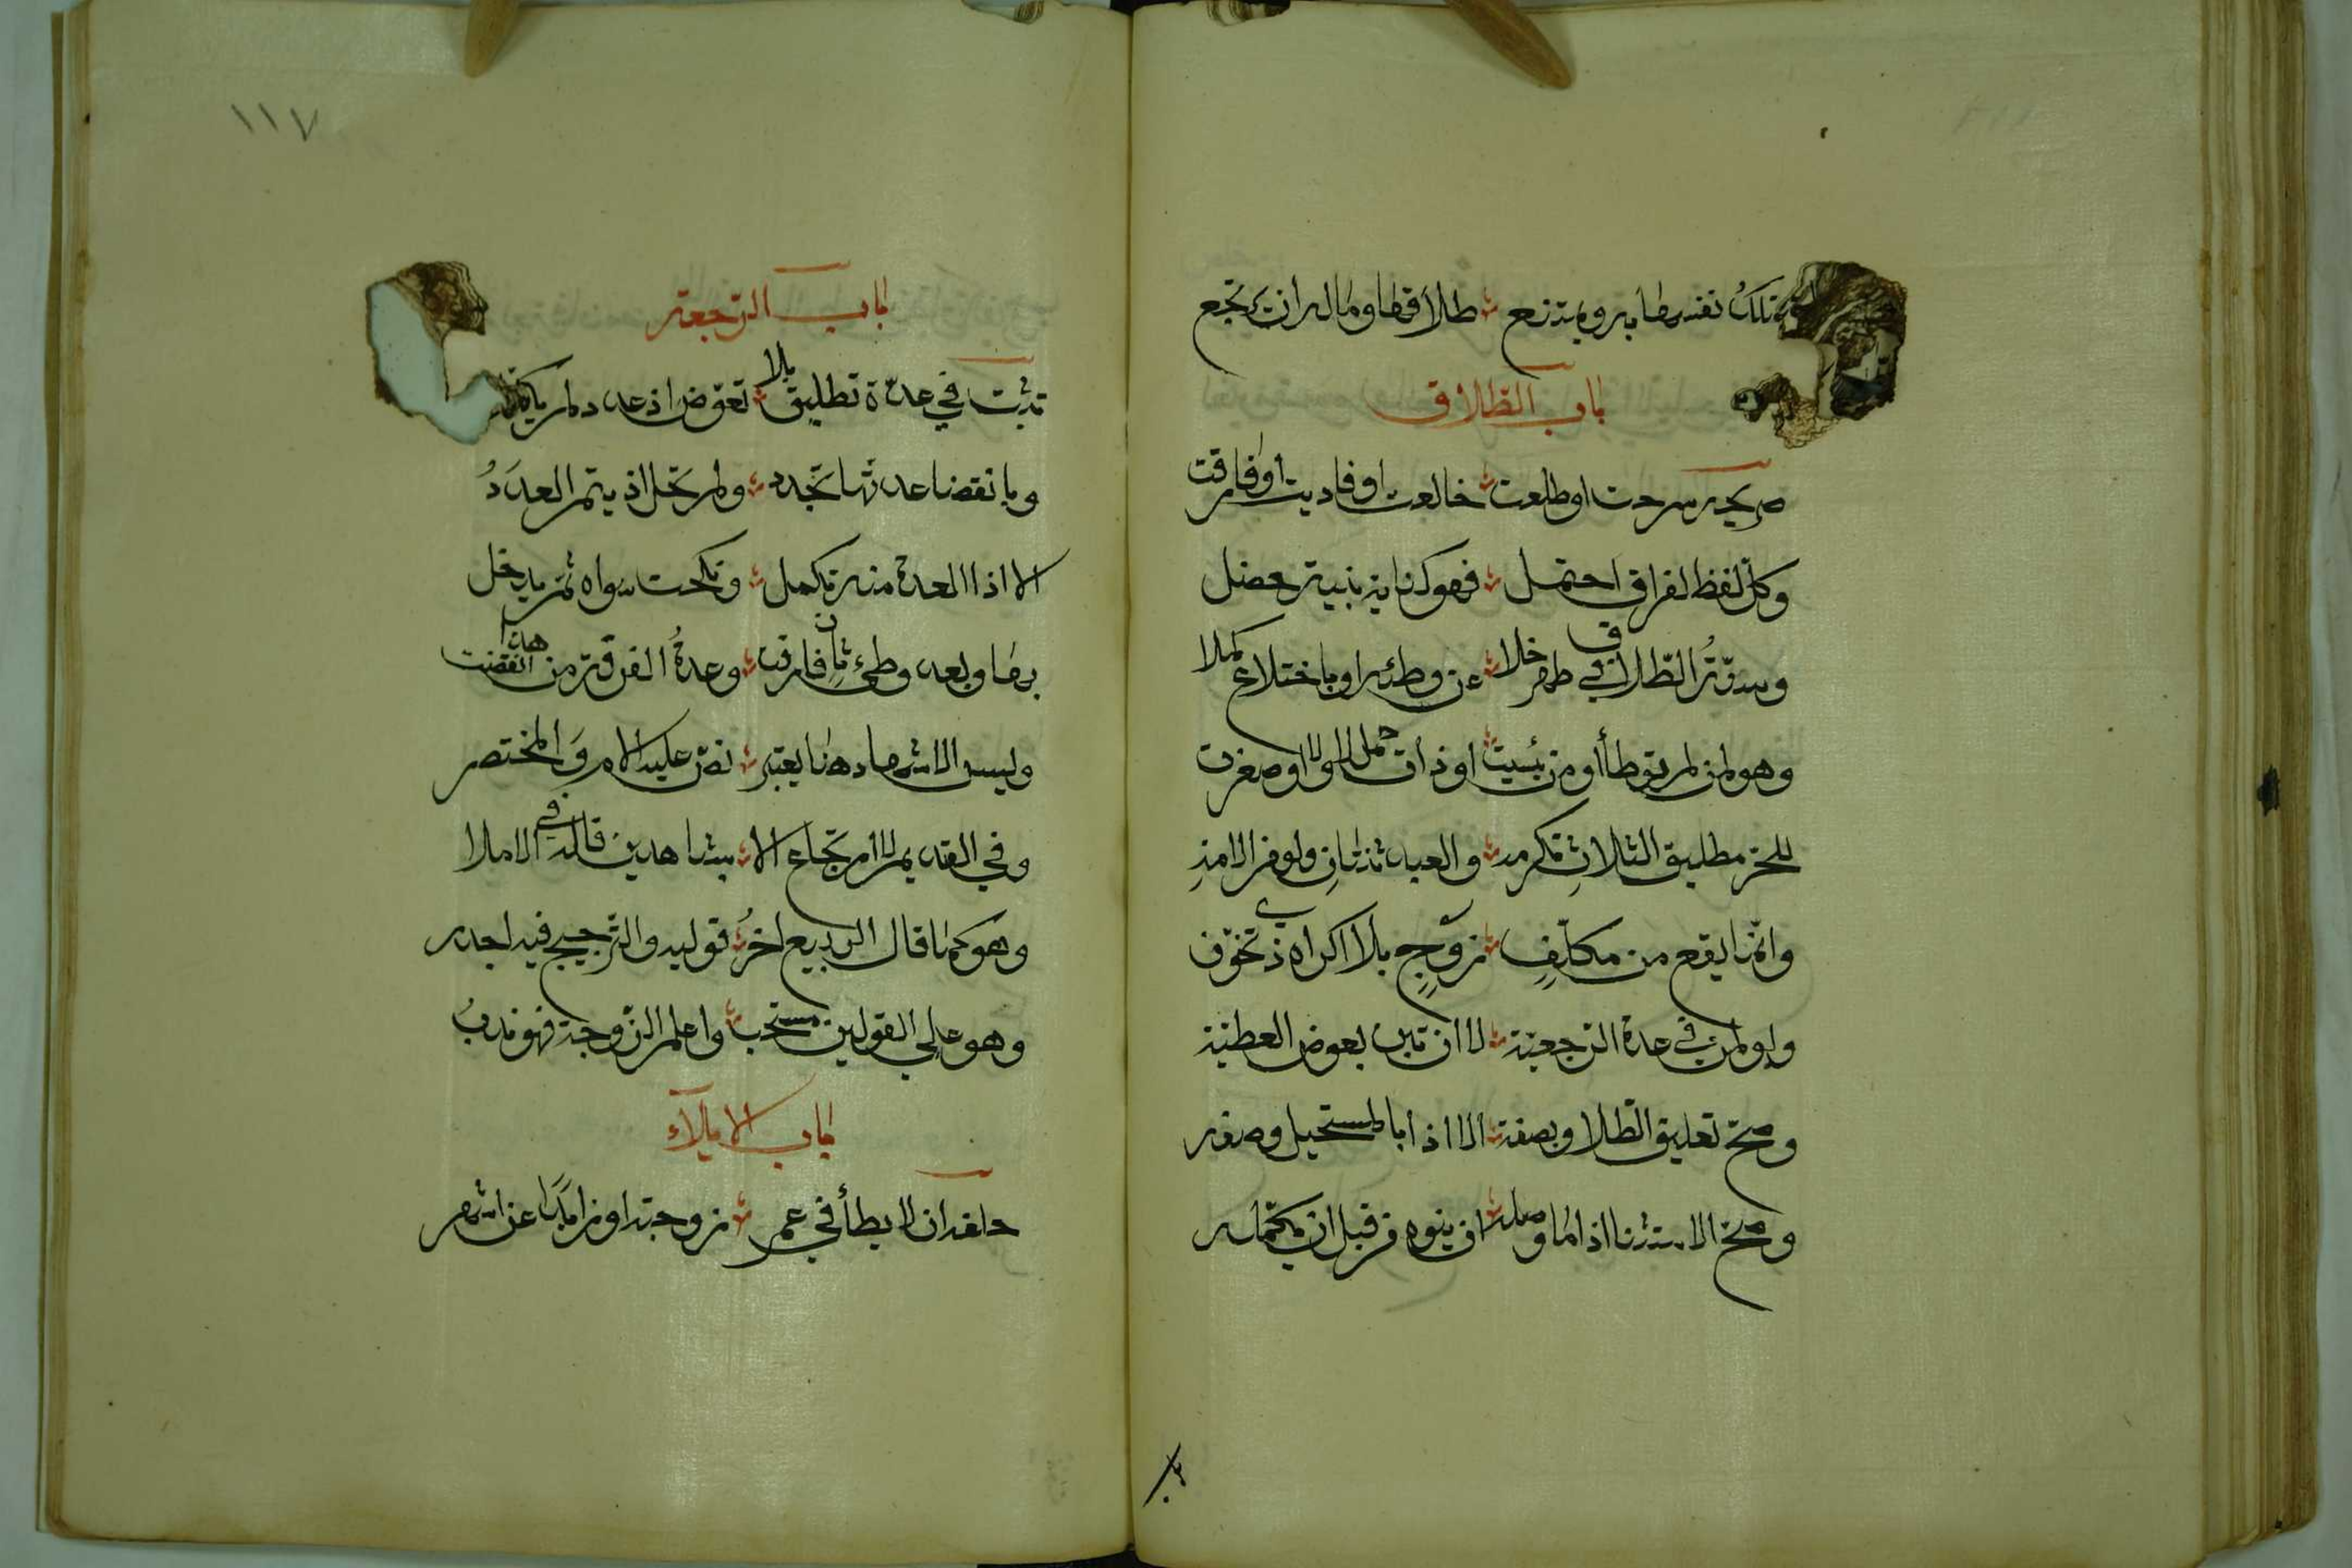 تملك نفسها به ويمتنع طلاقها وماله ان يرتجع
باب الطلاق
صريحه سرحت او طلقت خالعت او فاديت او فارقت
وكل لفظ لفراق احتمل فهو كناية بنية حصل
وسنة الطلاق في طهر خلا عن وطئه او باختلاع كملا
وهو لمن لم توطأ او من يئست او ذات حمل لا ولا او صغرت
للحر تطليق الثلاث تكرمه والعبد ثنتان ولو في الامة
وانما يقع من مكلف زوج بلا اكراه ذي تخوف
ولو لمن في عدة الرجعية لا ان تبن بعوض العطية
وصح تعليق الطلاق بصفة الا اذا بالمستحيل وصفه
وصح الاستثنا اذا ما وصله ان ينوه من قبل ان يكمله
١١٧
باب الرجعة
تثبت في عدة تطليق بلا تعوض اذ عدد لم يكملا
وبانقضا عدتها تجدد ولم تحل اذ يتم العدد
الا اذا العدة منه تكمل ونكحت سواه ثم يدخل
بها وبعد وطئ ثان فارقت وعدة الفرقة من هذا انقضت
وليس الاشهاد هنا يعتبر نص عليه الام والمختصر
وفي القديم لا ارتجاع الا بشاهدين قاله في الاملا
وهو كما قال الربيع اخر قوليه والترجيح فيه اجدر
وهو علي القولين مستحب واعلم الزوجة فهو ندب
باب الايلاء
حلفه ان لا يطأ في عمر زوجته او زايدا عن اشهر